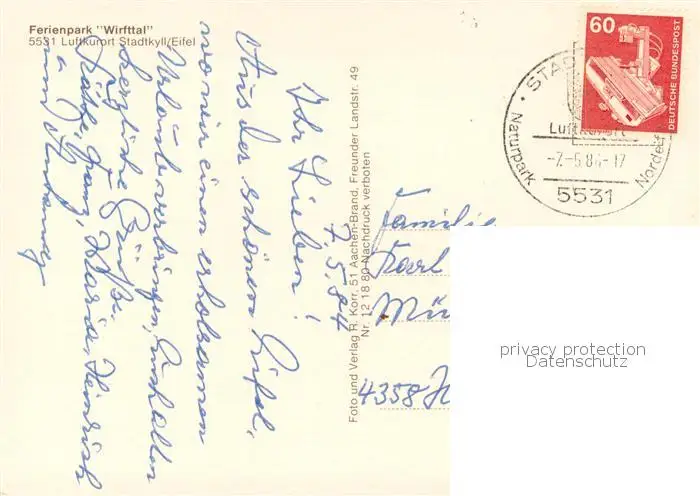 Ferienpark "Wirfttal"
5531 Luftkurort Stadtkyll/Eifel
7.5.84
Ihr Lieben!
Aus der schönen Eifel,
wo wir einen erholsamen
Urlaub verbringen, Euch allen
herzliche Grüße.
Käthe, Franz, Maria, Heinrich
u.
Foto und Verlag R. Korr. 51 Aachen-Brand, Freunder Landstr. 49
Nr. 12 18 80 Nachdruck verboten
60
DEUTSCHE BUNDESPOST
STAD
Luftkurort
-7.-5.84-17
Naturpark Nordeif
5531
Familie
Karl
Mü
4358 H
privacy protection
Datenschutz